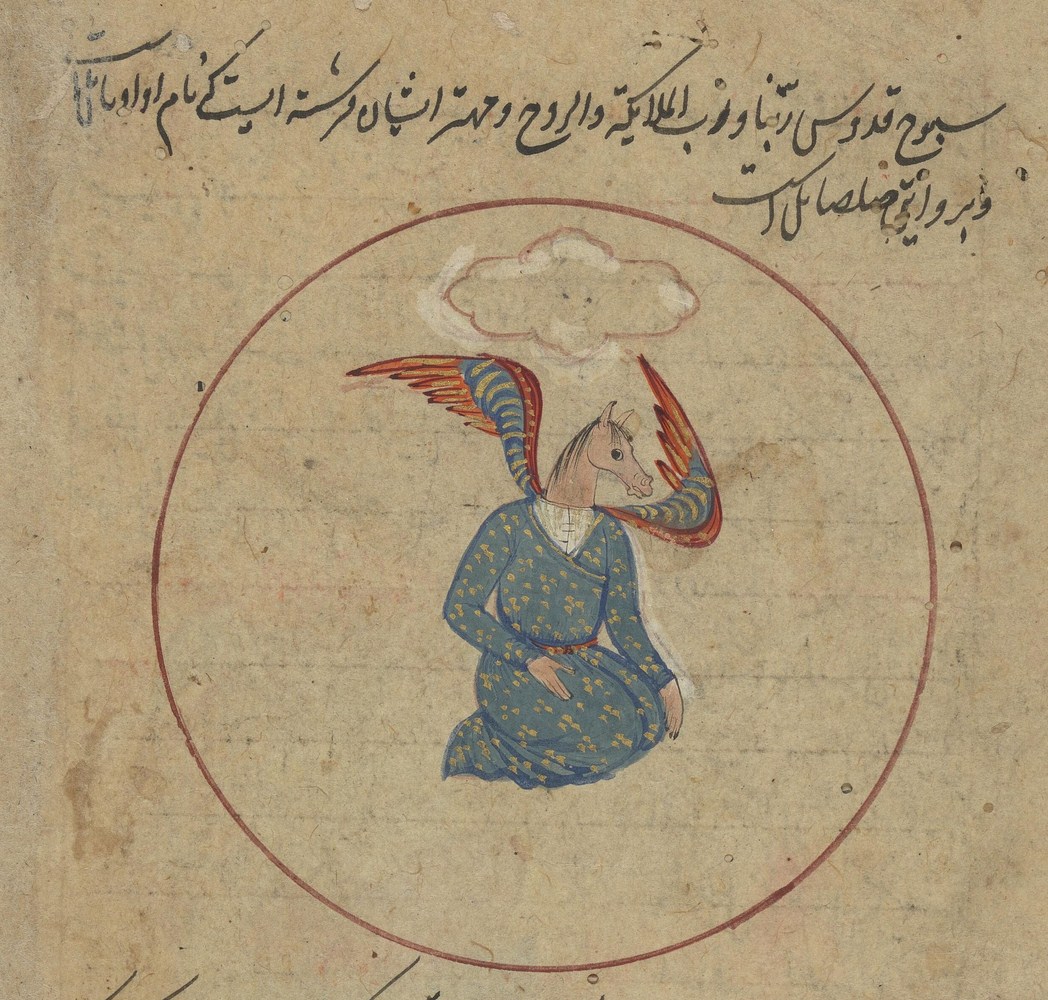 سبوح قدوس ربنا و رب الملایکة والروح و مهتر ایشان فرشته ایست که نام او اویائیل است
و بروایتی صلصائل است